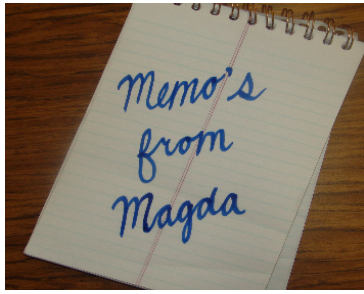 Memo's
from
Magda